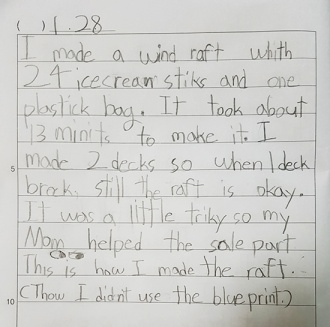 ( ) 1.28
I made a wind raft whith
24 icecream stiks and one
plastick bag. It took about
13 minits to make it. I
made 2 decks so when 1 deck
brock, still the raft is okay.
5
It was a little triky so my
Mom helped the sale part
This is how I made the raft.
(Thow I didn't use the blueprint.)
10